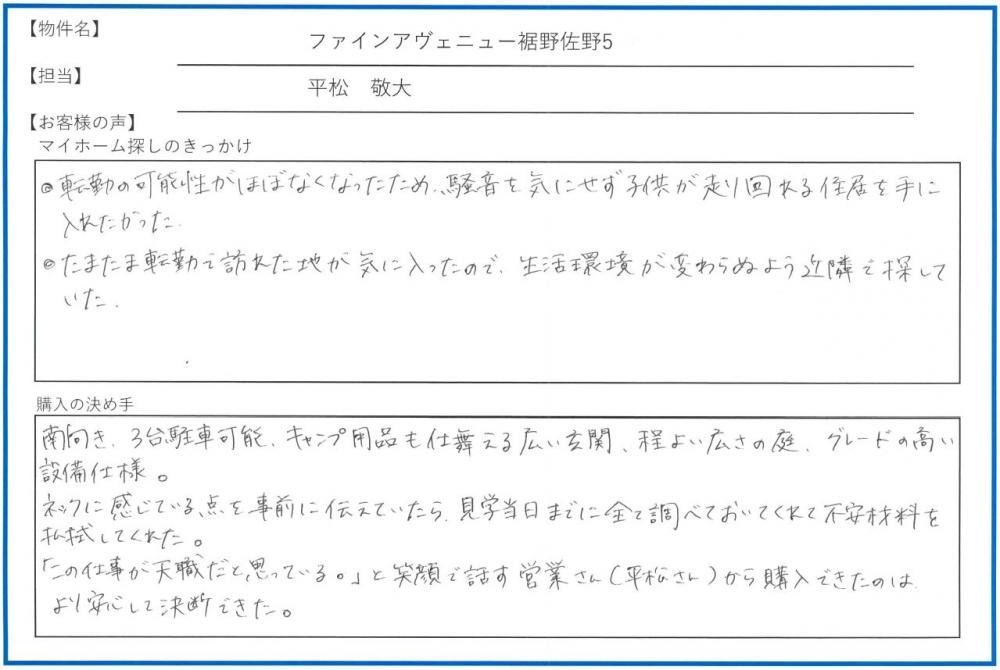 【物件名】
ファインアヴェニュー裾野佐野5
【担当】
平松 敬大
【お客様の声】
マイホーム探しのきっかけ
◎転勤の可能性がほぼなくなったため、騒音を気にせず子供が走り回れる住居を手に
入れたかった。
◎たまたま転勤で訪れた地が気に入ったので、生活環境が変わらぬよう近隣で探して
いた。
購入の決め手
南向き、3台駐車可能、キャンプ用品も仕舞える広い玄関、程よい広さの庭、グレードの高い
設備仕様。
ネックに感じている点を事前に伝えていたら、見学当日までに全て調べておいてくれて不安材料を
払拭してくれた。
「この仕事が天職だと思っている。」と笑顔で話す営業さん(平松さん)から購入できたのは、
より安心して決断できた。